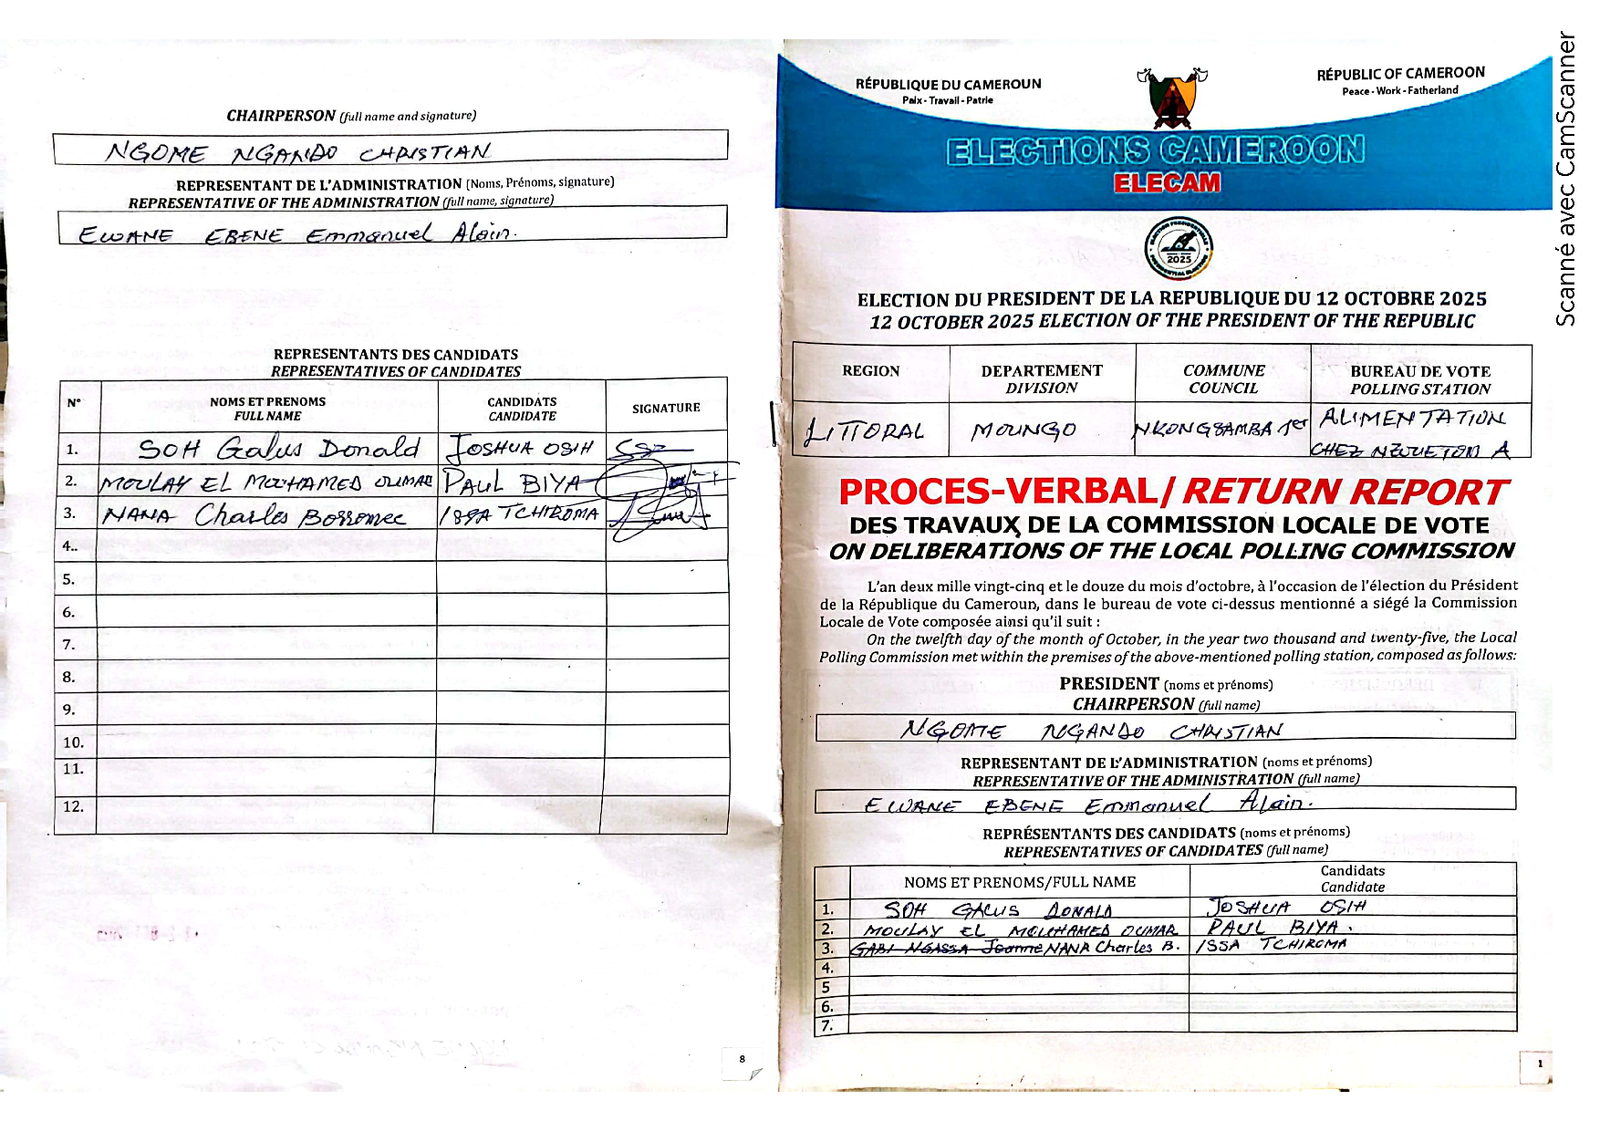 CHAIRPERSON (full name and signature)
NGOME NGANDO CHRISTIAN
REPRESENTANT DE L'ADMINISTRATION (Noms, Prénoms, signature)
REPRESENTATIVE OF THE ADMINISTRATION (full name, signature)
EWANE EBENE Emmanuel Alain.
REPRESENTANTS DES CANDIDATS
REPRESENTATIVES OF CANDIDATES
N° NOMS ET PRENOMS FULL NAME CANDIDATS CANDIDATE SIGNATURE
1. SOH Galus Donald JOSHUA OSIH
2. MOULAY EL MOUHAMED OUMAR PAUL BIYA
3. NANA Charles Borromec ISSA TCHIROMA
4..
5.
6.
7.
8.
9.
10.
11.
12.
8
RÉPUBLIQUE DU CAMEROUN
Paix - Travail - Patrie
RÉPUBLIC OF CAMEROON
Peace - Work - Fatherland
ELECTIONS CAMEROON
ELECAM
ELECTION PRESIDENTIELLE
2025
PRESIDENTIAL ELECTION
ELECTION DU PRESIDENT DE LA REPUBLIQUE DU 12 OCTOBRE 2025
12 OCTOBER 2025 ELECTION OF THE PRESIDENT OF THE REPUBLIC
REGION DEPARTEMENT DIVISION COMMUNE COUNCIL BUREAU DE VOTE POLLING STATION
LITTORAL MOUNGO NKONGSAMBA 1er ALIMENTATION CHEZ NZUETOM A
PROCES-VERBAL/ RETURN REPORT
DES TRAVAUX DE LA COMMISSION LOCALE DE VOTE
ON DELIBERATIONS OF THE LOCAL POLLING COMMISSION
L'an deux mille vingt-cinq et le douze du mois d'octobre, à l'occasion de l'élection du Président
de la République du Cameroun, dans le bureau de vote ci-dessus mentionné a siégé la Commission
Locale de Vote composée ainsi qu'il suit :
On the twelfth day of the month of October, in the year two thousand and twenty-five, the Local
Polling Commission met within the premises of the above-mentioned polling station, composed as follows:
PRESIDENT (noms et prénoms)
CHAIRPERSON (full name)
NGOME NGANDO CHRISTIAN
REPRESENTANT DE L'ADMINISTRATION (noms et prénoms)
REPRESENTATIVE OF THE ADMINISTRATION (full name)
EWANE EBENE Emmanuel Alain.
REPRÉSENTANTS DES CANDIDATS (noms et prénoms)
REPRESENTATIVES OF CANDIDATES (full name)
NOMS ET PRENOMS/FULL NAME Candidats Candidate
1. SOH GALUS DONALD JOSHUA OSIH
2. MOULAY EL MOUHAMED OUMAR PAUL BIYA.
3. GABI NGASSA Joanne NANA Charles B. ISSA TCHIROMA
4.
5
6.
7.
1
Scanné avec CamScanner